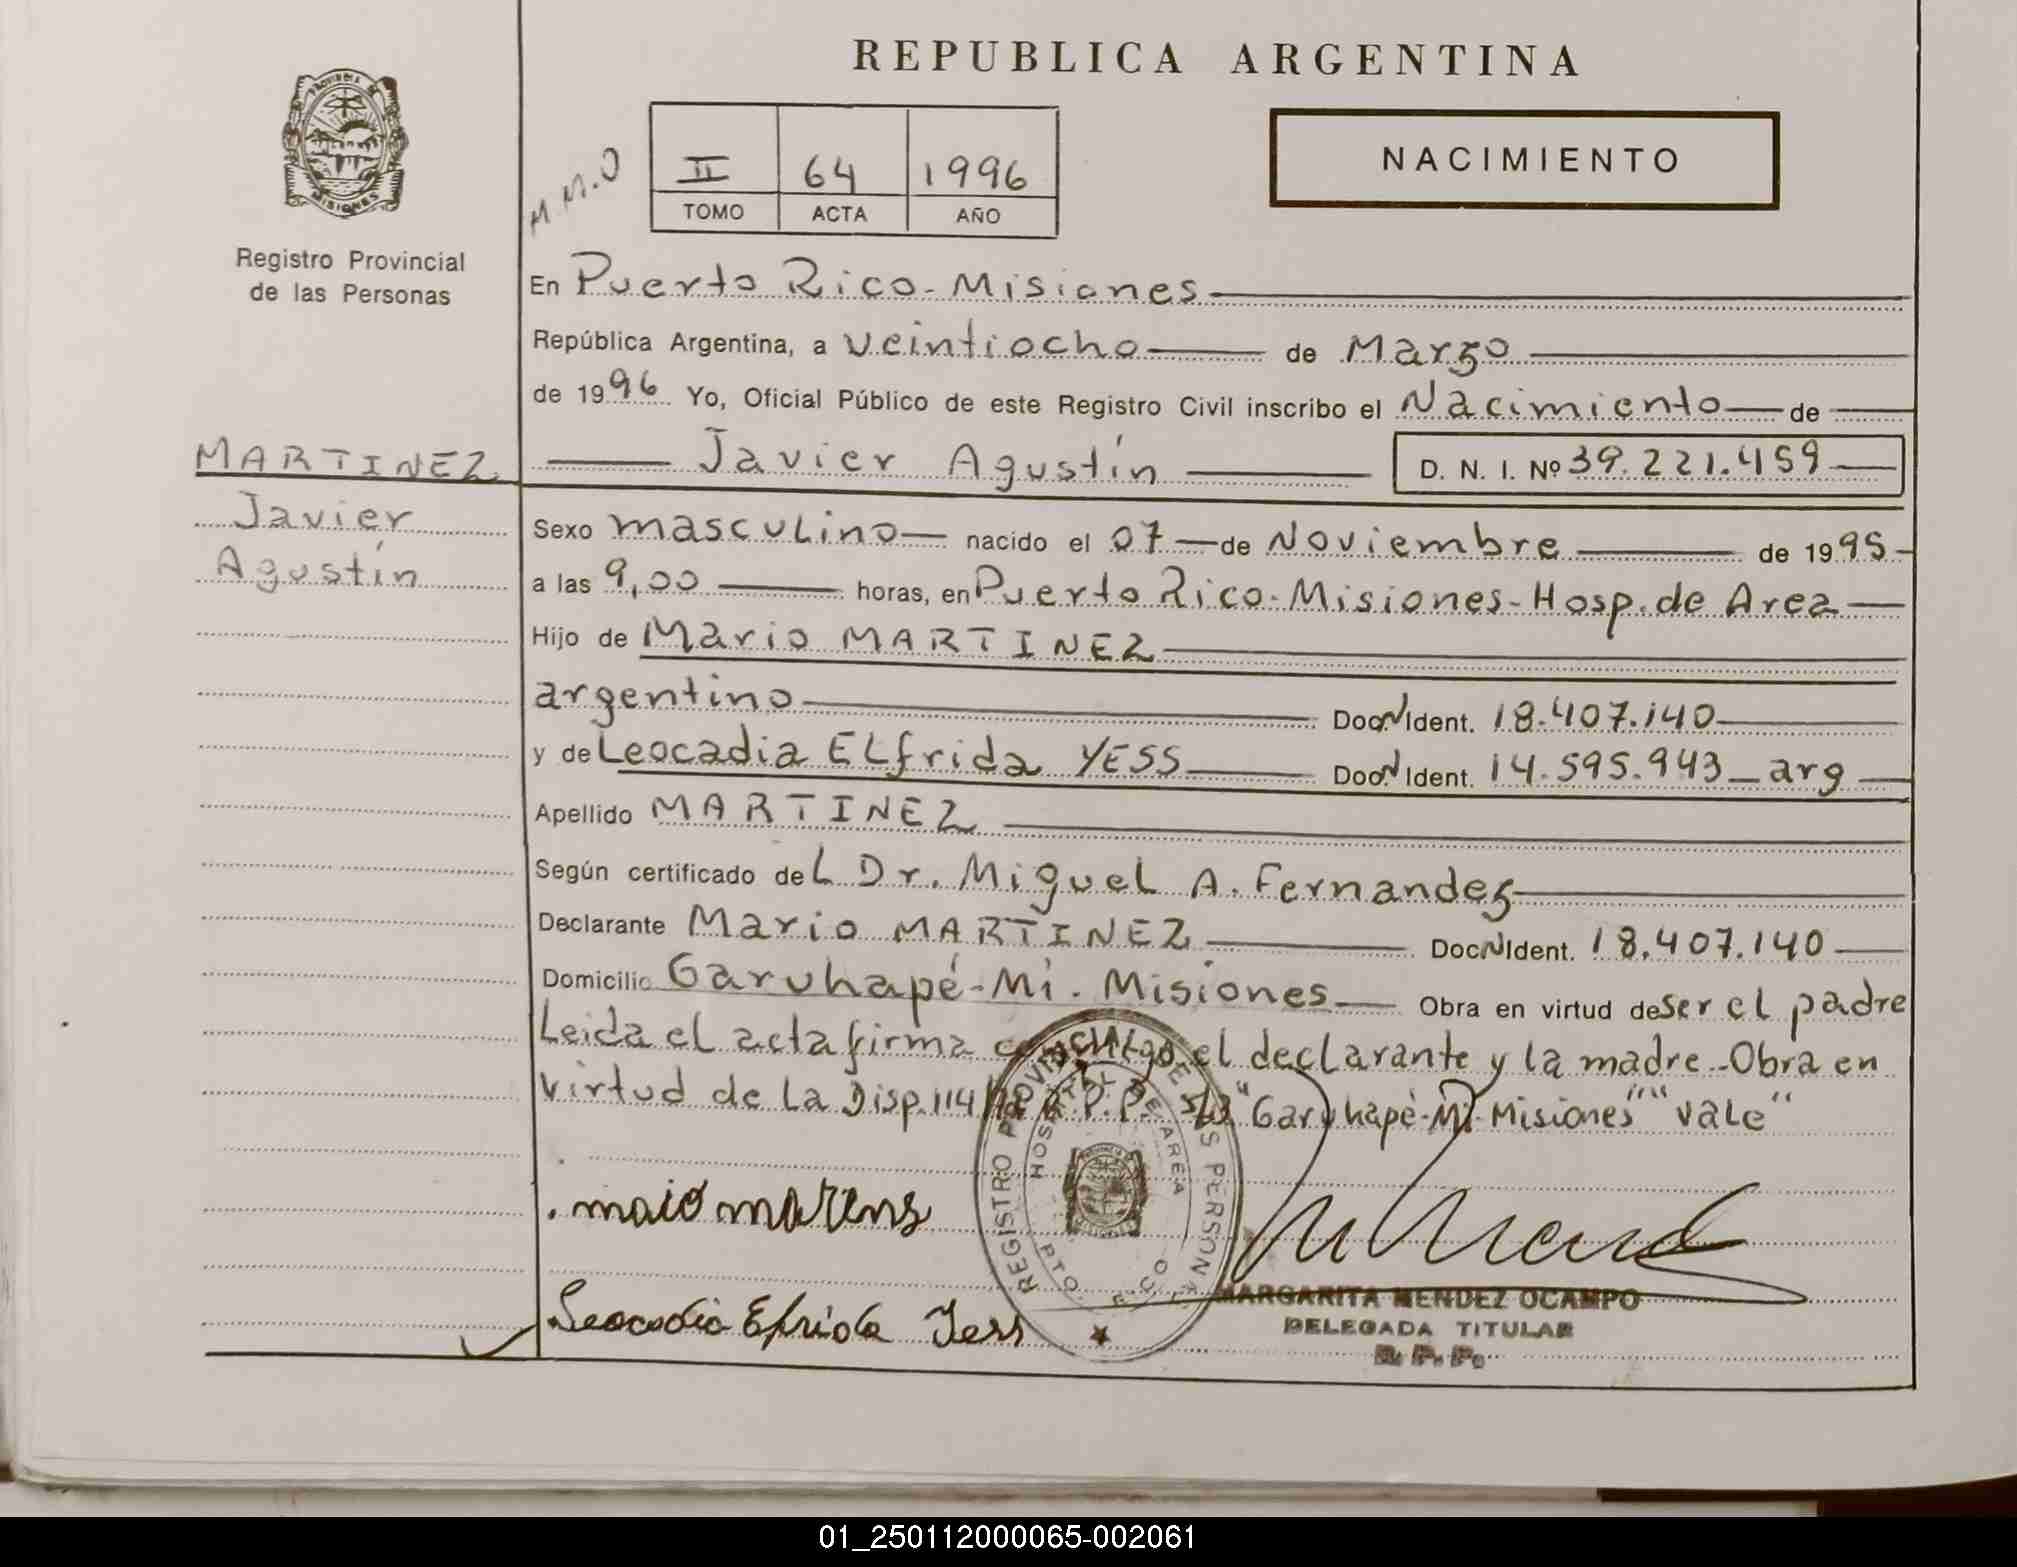 REPUBLICA ARGENTINA
PROVINCIA DE
MISIONES
Registro Provincial
de las Personas
M.M.O
II 64 1996
TOMO ACTA AÑO
NACIMIENTO
En Puerto Rico-Misiones
República Argentina, a veintiocho de Marzo
de 1996 Yo, Oficial Público de este Registro Civil inscribo el Nacimiento de
MARTINEZ
Javier
Agustín
Javier Agustín D. N. I. Nº 39.221.459
Sexo masculino nacido el 07 de Noviembre de 1995
a las 9,00 horas, en Puerto Rico-Misiones-Hosp. de Area
Hijo de Mario MARTINEZ
argentino Doc N Ident. 18.407.140
y de Leocadia ELfrida YESS Doc N Ident. 14.595.943 _ arg
Apellido MARTINEZ
Según certificado del Dr. Miguel A. Fernandez
Declarante Mario MARTINEZ Doc N Ident. 18.407.140
Domicilio Garuhapé-Mi. Misiones Obra en virtud de ser el padre
Leida el acta firma conmigo el declarante y la madre-Obra en
virtud de la Disp. 114 R.P.P. "Garuhapé-Mi-Misiones" "Vale"
REGISTRO PROVINCIAL DE LAS PERSONAS
HOSPITAL DE AREA
PTO. RICO
maio marens
Leocadia Efrida Jess
MARGARITA MENDEZ OCAMPO
DELEGADA TITULAR
R. P. P.
01_250112000065-002061